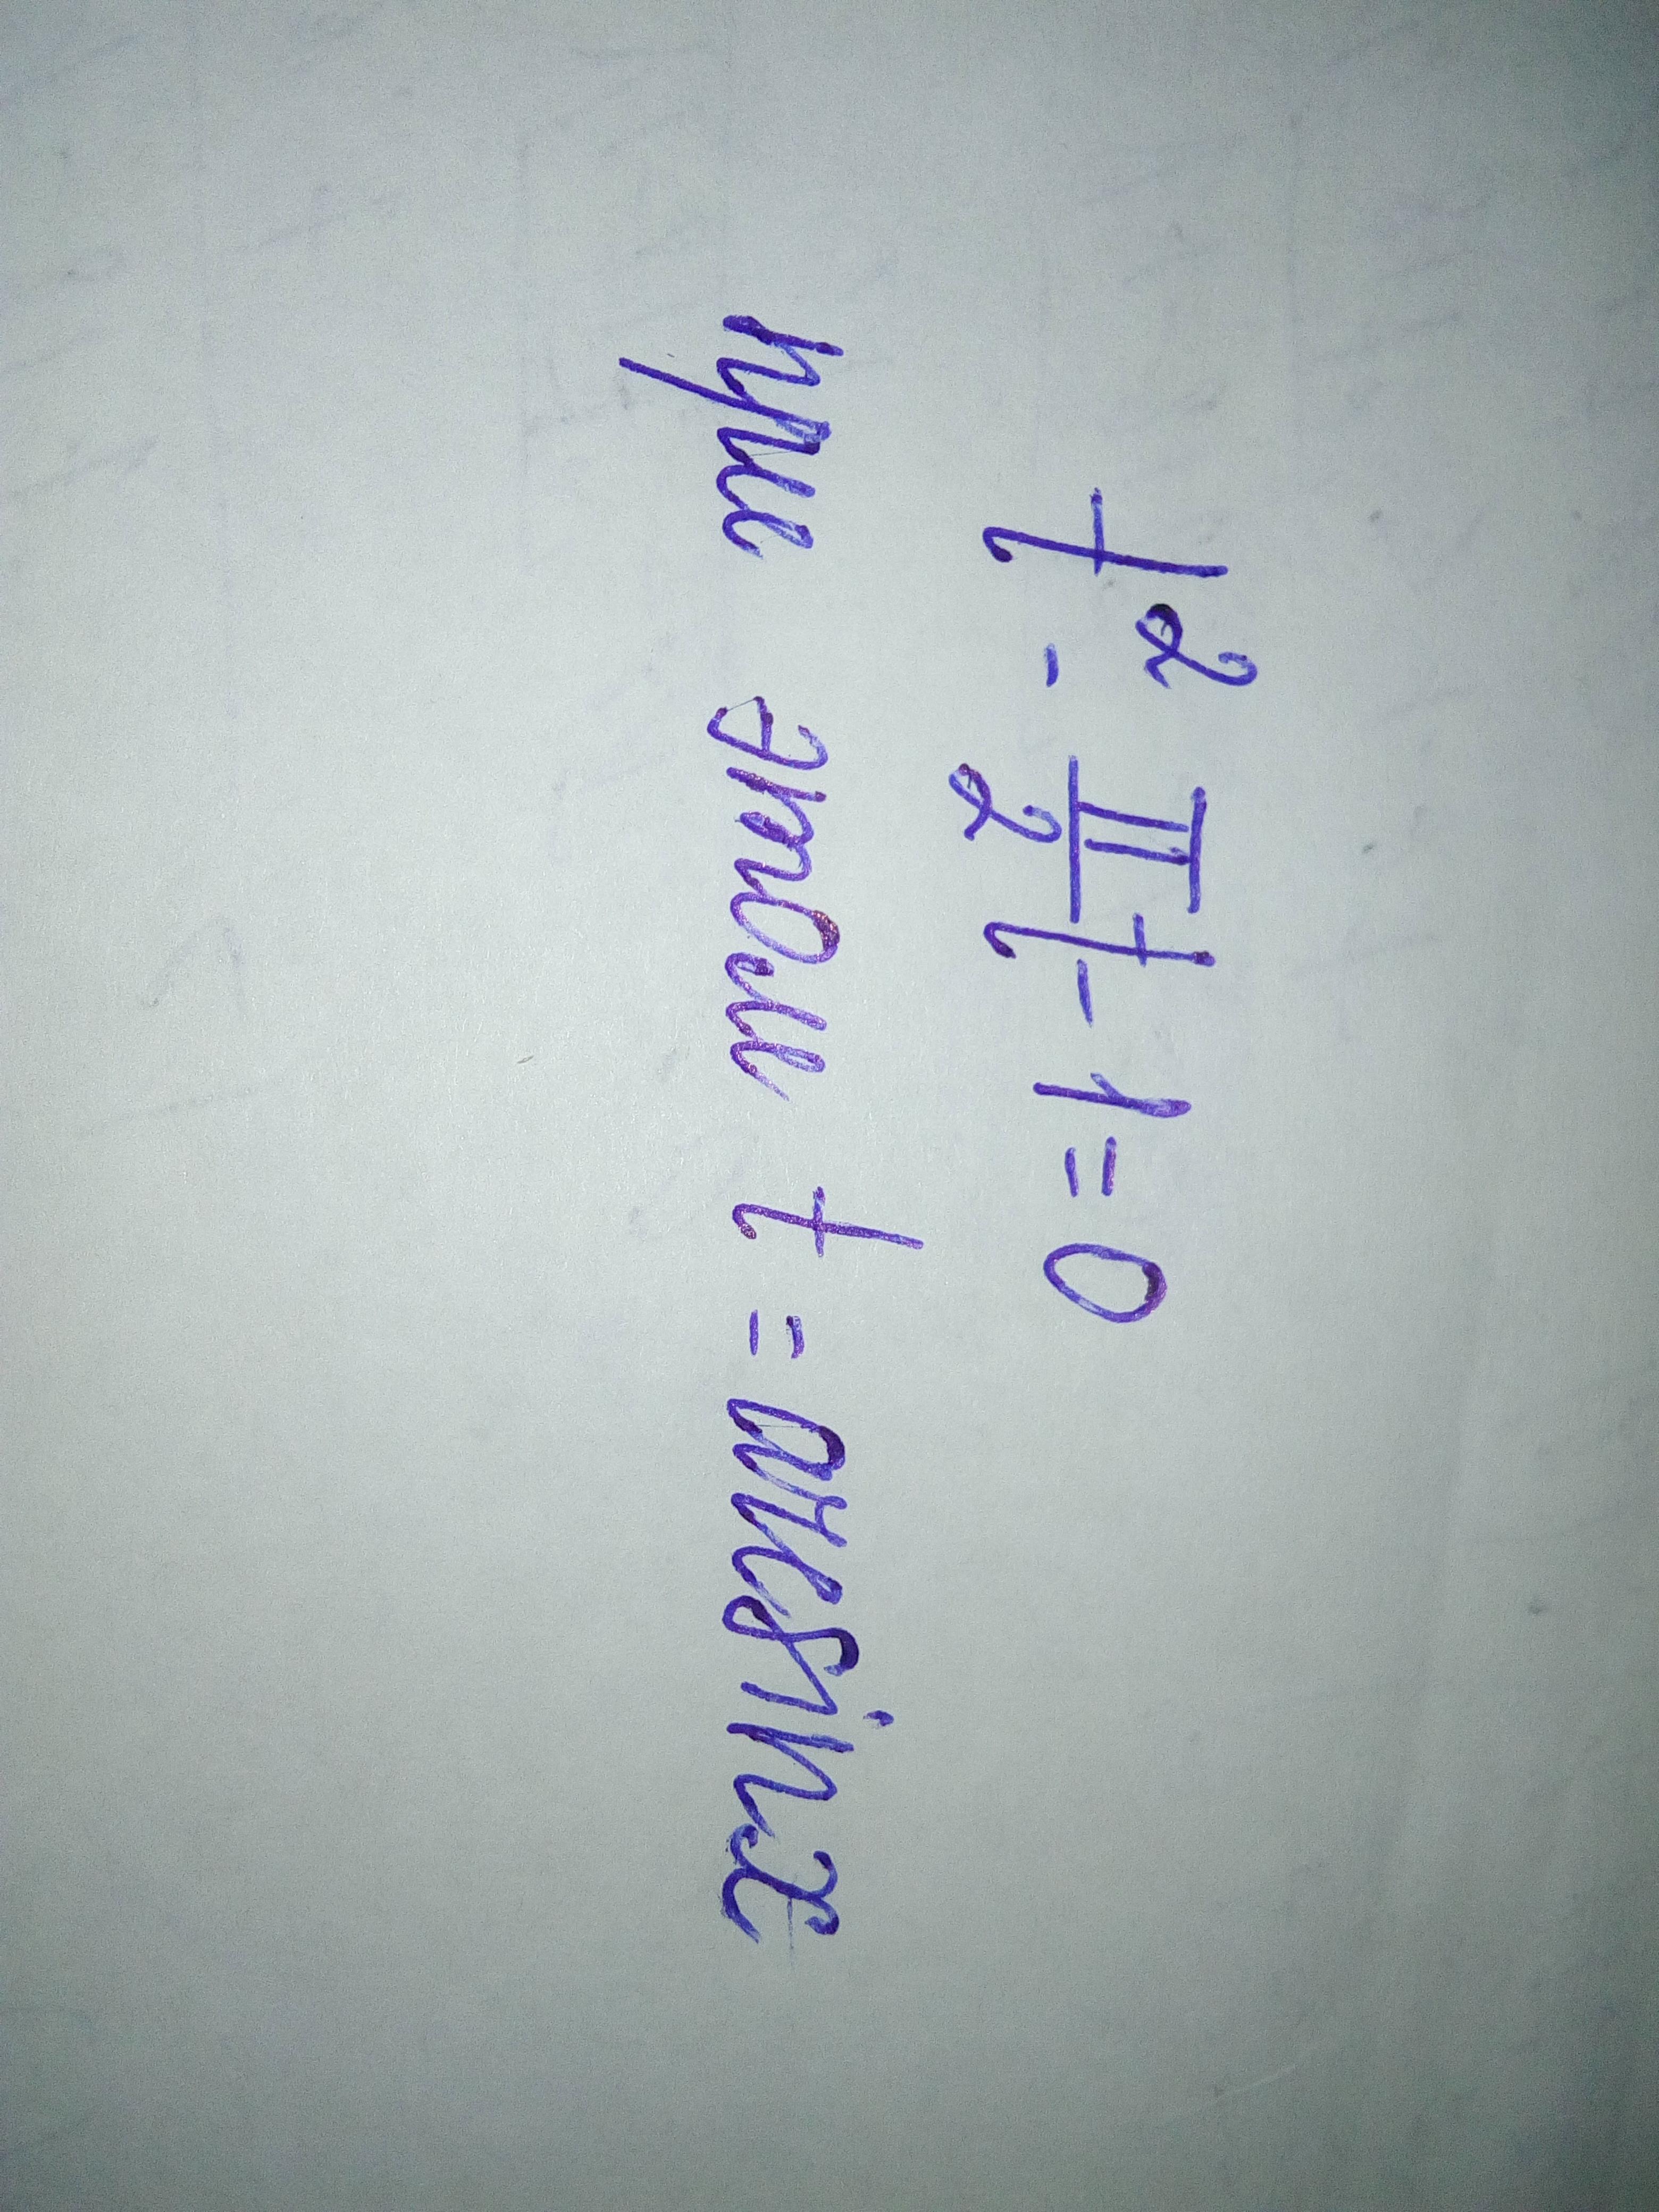 t² - π/2 t - 1 = 0
при этом t = arcsinx